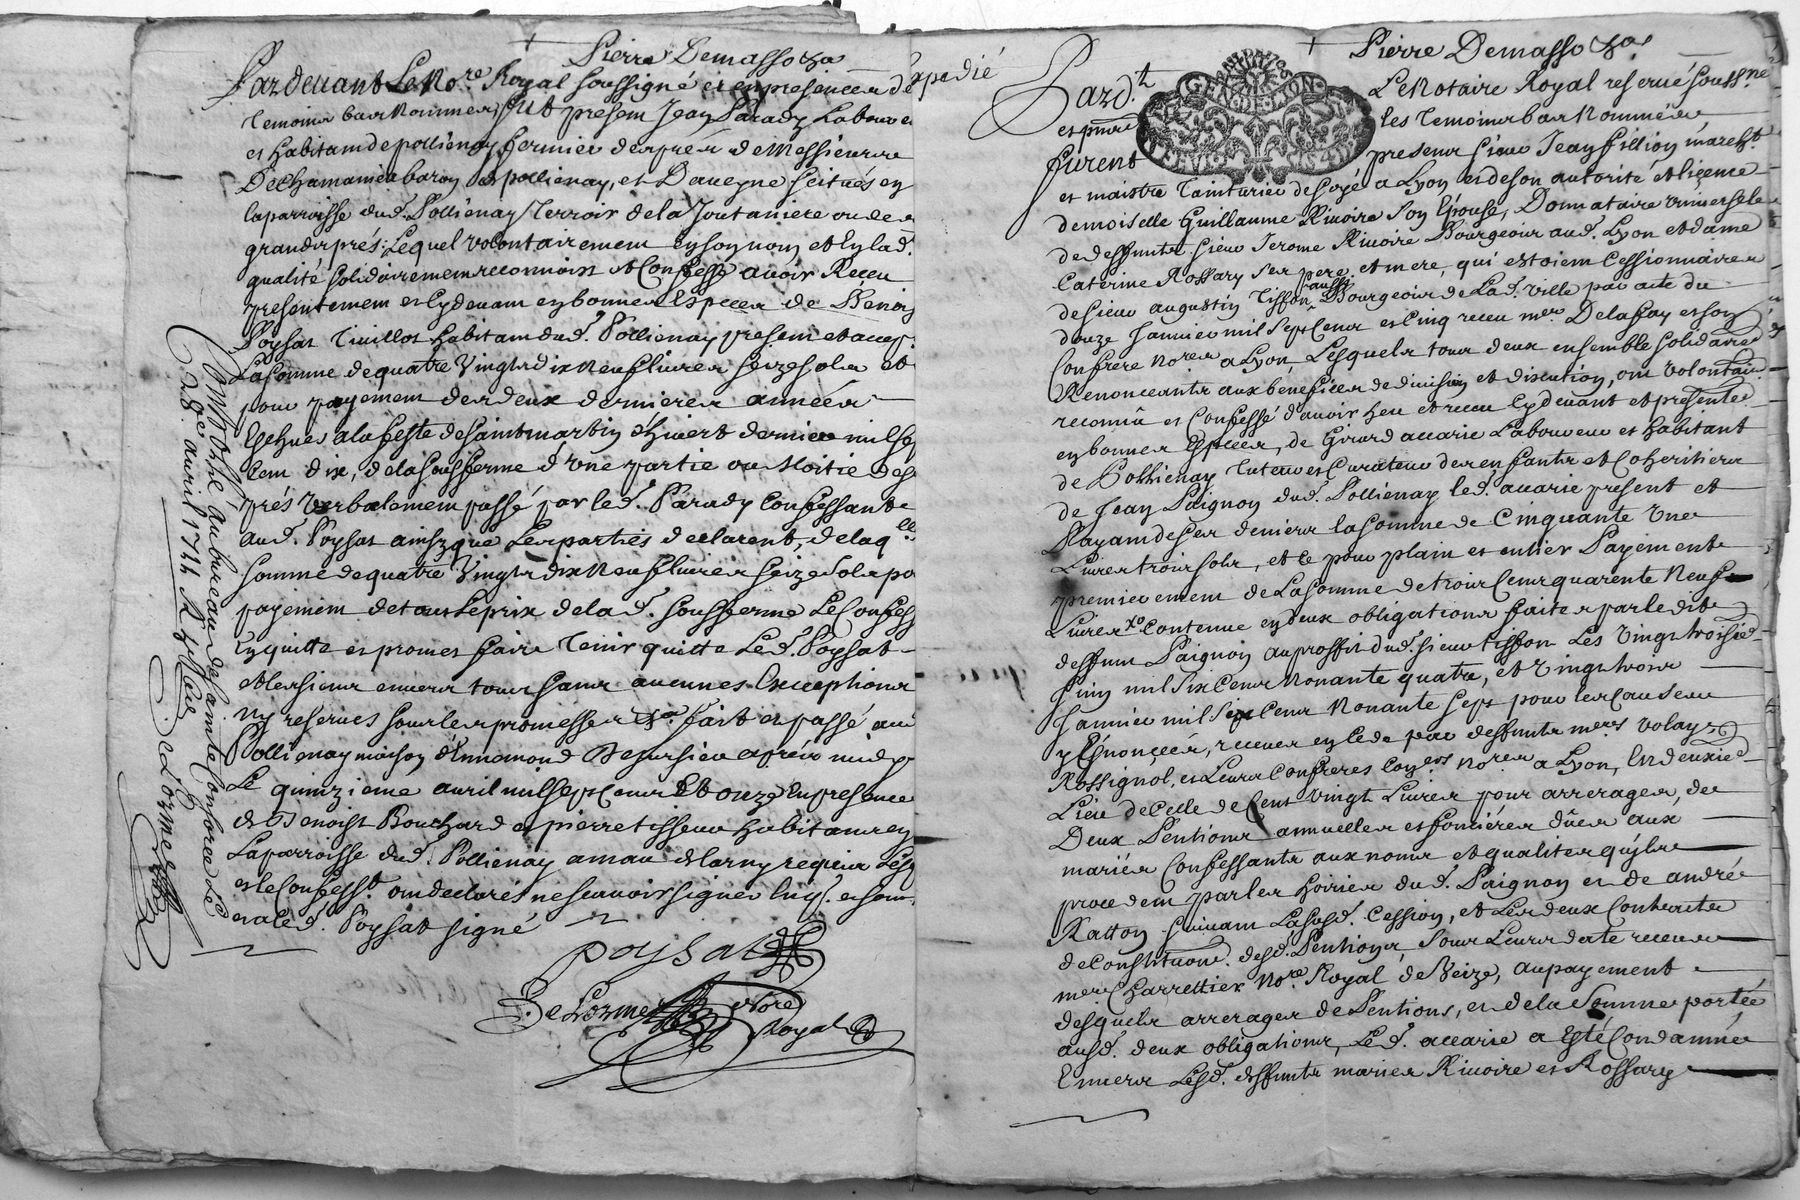 Pierre Demasso &a
Pardevant Le No.re Royal soussigné et en presence des
temoins bas nommés, fut present Jean Parady Laboureur
et habitant de pollienay fermier des prés de Messieurs
De Chamanieu baron de pollienay, et Daveyne scitués en
la parroisse dud. Pollienay Terroir de la Joutaniere ou des
grands prés; Lequel volontairement en son nom et en lad.
qualité solidairement reconnoist et Confesse avoir Receu
presentement et cydevant en bonnes Especes de Benoist
Poysat Tuillot habitant dud. Pollienay present et accep.
La somme de quatre Vingts dix Neuf livres seize sols et
pour payement des deux dernieres années
Eschues a la feste de saint martin d'hivert dernier mil sep
Cent dix, de la sousferme d'Une partie ou Moitie des
prés Verbalement passé par led. Parady Confessant
aud. Poysat ainsy que Les parties declarent, de laq.lle
somme de quatre Vingts dix Neuf livres seize sols po
payement de tout Le prix de lad. sousferme Le Confess
En quitte et promet faire Tenir quitte Led. Poysat
et Les siens envers tous sans aucunes Exceptions
Ny reserves sous les promesses &a. fait et passé aud
Pollienay maison d'Ennemond Desursieu apres midy
Le quinzieme avril mil sept Cents Et onze En presence
de Benoist Bouchard et pierre tisseur habitans en
La parroisse dud. Pollienay
et le Confess.t ont declarés ne scavoir signer Enq. et som.
et a led. Poysat signé
poysat
DeLorme Nore
Royal
Controllé au bureau de sainte Consorce Le
28e. avril 1711 R
DeLorme
expedié
Pierre Demasso &a
Pard.t
GEN.DE.LYON
Le Notaire Royal reservé souss.né
et pnce
les temoins bas Nommés
furent
presens sieur Jean fillion march.t
et maistre Tainturier de soye a Lyon et de son autorité et licence
demoiselle Guillaume Rivoire son Epouse, Donnataire universelle
de deffunts sieur Jerome Rivoire Bourgeois aud. Lyon et dame
Caterine Rossary ses pere et mere, qui estoient Cessionnaires
de sieur augustin Tisson aussy Bourgeois de Lad. ville par acte du
douze Janvier mil sept Cent et Cinq receu m.re Delafay et son
Confrere No.res a Lyon, Lesquels tous deux ensemble solidaires
Renonceants aux benefices de division et discution, ont volontair.
reconnû et Confessé d'avoir heu et receu cydevant et presentem.
en bonnes Especes, de Girard accarie Laboureur et habitant
de Pollienay Tuteur et Curateur des enfants et Coheritiers
de Jean Paignon dud. Pollienay led. accarie present et
Payant de ses deniers la somme de Cinquante Une
Livres trois sols, et ce pour plain et entier Payement
premierement de La somme de trois Cents quarente Neuf
Livres Contenue en deux obligations faites par ledit
deffunt Paignon au proffit dud. sieur tisson Les Vingt troisie.
Juin mil six Cents Nonante quatre, et Vingt trois
Janvier mil six Cents Nonante sept pour les Causes
y Enoncées, receues par deffunts m.res Volay
Rossignol, et Leurs Confreres Con.ers No.res a Lyon, En deuxie.
Lieu de Celle de Cent Vingt Livres pour arrerages, des
Deux Pentions annuelles et foncières dûes aux
mariés Confessants aux noms et qualites qu'yls
procedent par les hoiries dud. Paignon et de andré
Ratton suivant La susd. Cession, et Les deux Contracts
de Constitutions desd. Pentions, sous Leurs date receues
m.re Charrettier No.re Royal de Veize, au payement
desquels arrerages de Pentions, et de la somme portée
ausd. deux obligations, Led. accarie a Esté Condamné
Envers Lesd. deffunts mariés Rivoire et Rossary